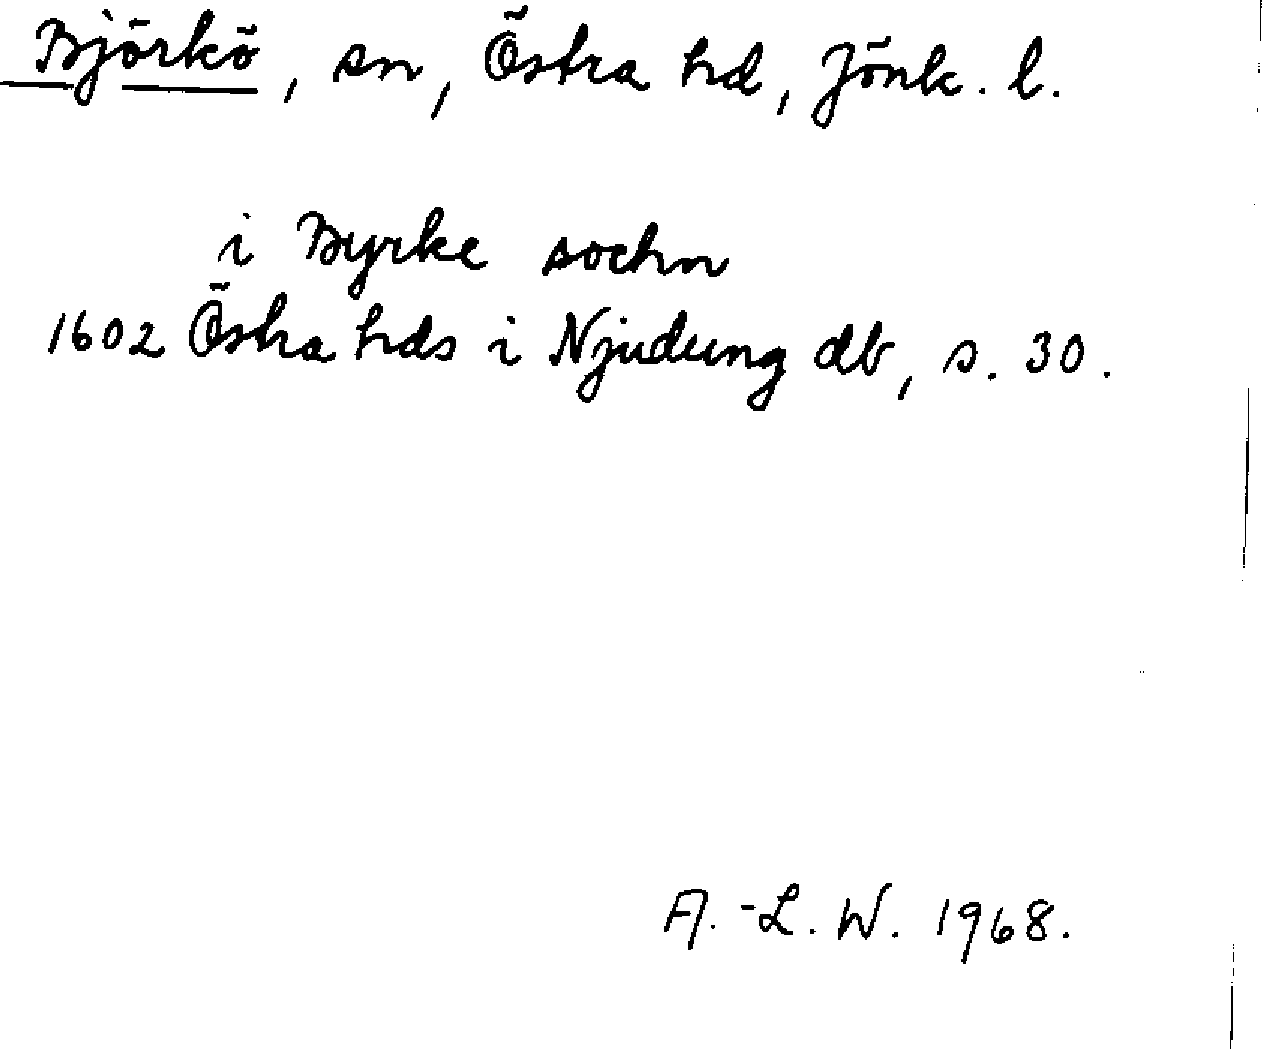 Björkö, sn, Östra hd, Jönk. l.
i Byrke sochn
1602 Östra hds i Njudung db, s. 30.
A.-L. W. 1968.